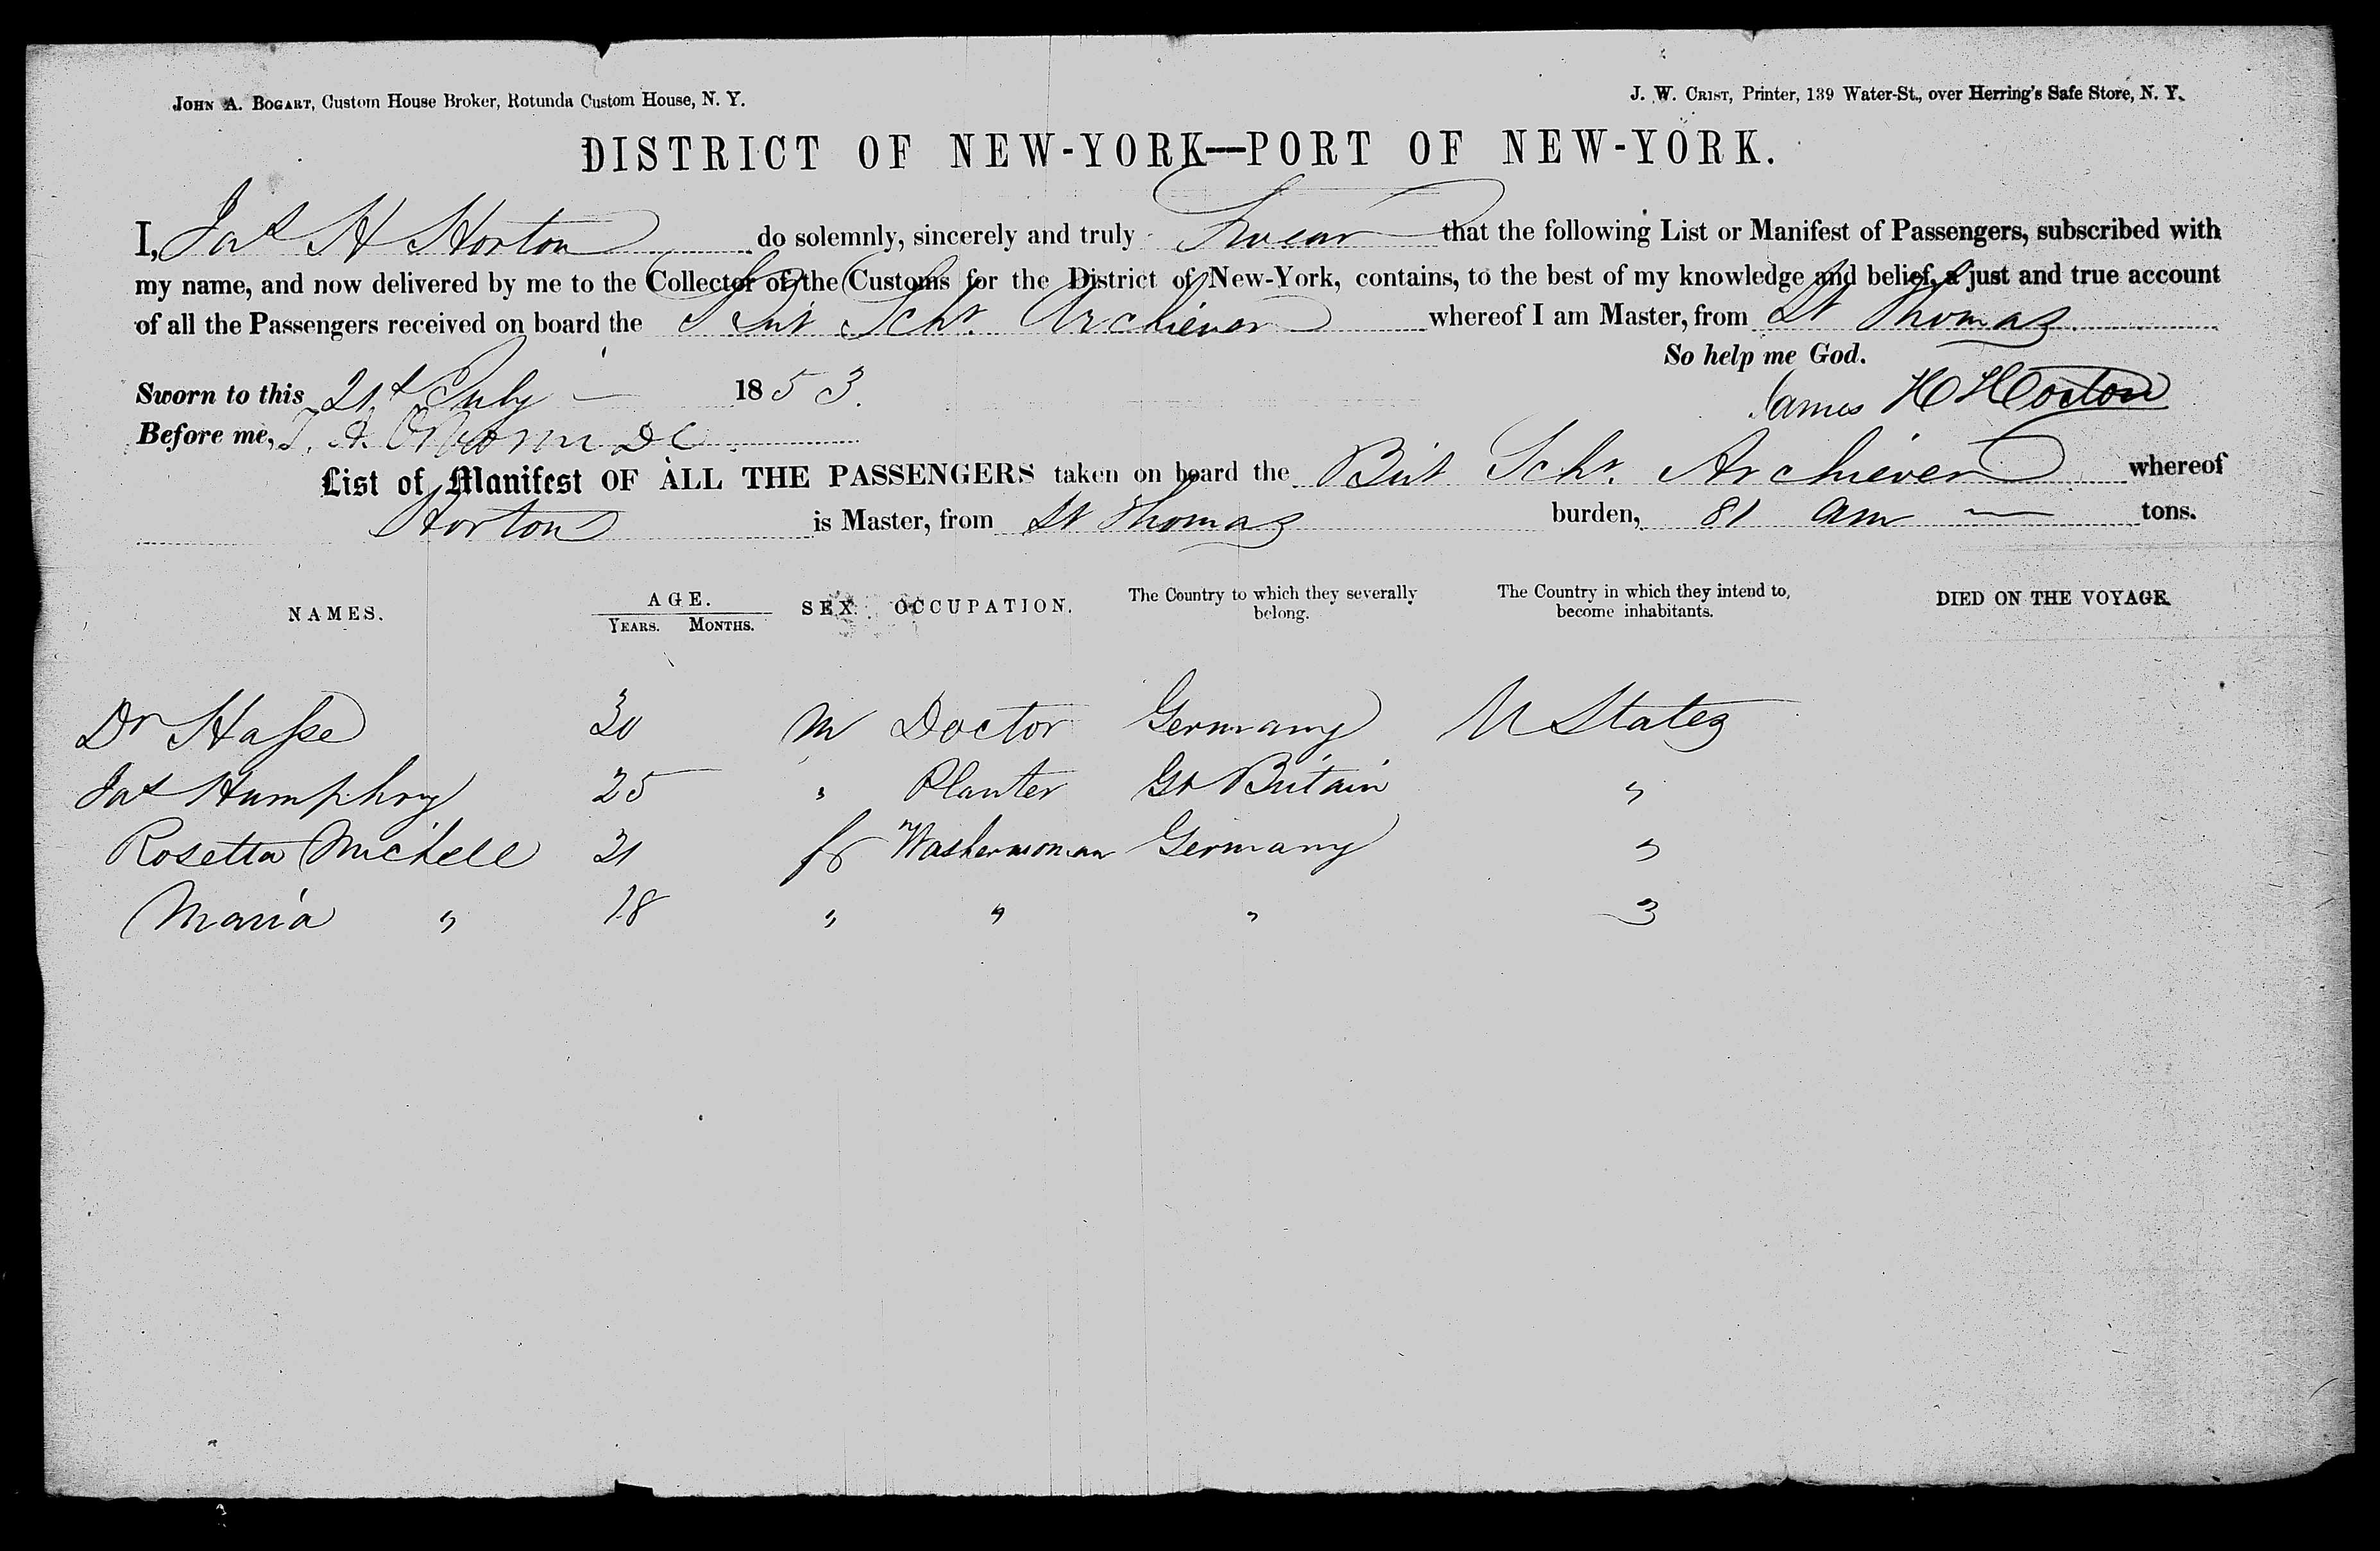 JOHN A. BOGART, Custom House Broker, Rotunda Custom House, N. Y.
J. W. CRIST, Printer, 139 Water-St., over Herring's Safe Store, N. Y.
DISTRICT OF NEW-YORK—PORT OF NEW-YORK.
I, Jas H Horton do solemnly, sincerely and truly Swear that the following List or Manifest of Passengers, subscribed with
my name, and now delivered by me to the Collector of the Customs for the District of New-York, contains, to the best of my knowledge and belief, a just and true account
of all the Passengers received on board the Brit Schr. Archiever whereof I am Master, from St Thomas
So help me God.
Sworn to this 21st July — 1853.
James H Horton
Before me, T. A. DC
List of Manifest OF ALL THE PASSENGERS taken on board the Brit Schr. Archiever whereof
Horton is Master, from St Thomas burden, 81 am — tons.
NAMES. AGE. YEARS. MONTHS. SEX. OCCUPATION. The Country to which they severally belong. The Country in which they intend to become inhabitants. DIED ON THE VOYAGE.
Dr Hasse 30 M Doctor Germany U States
Jas Humphry 25 " Planter Gt Britain "
Rosetta Michell 21 f Washerwoman Germany "
Maria " 18 " " " "